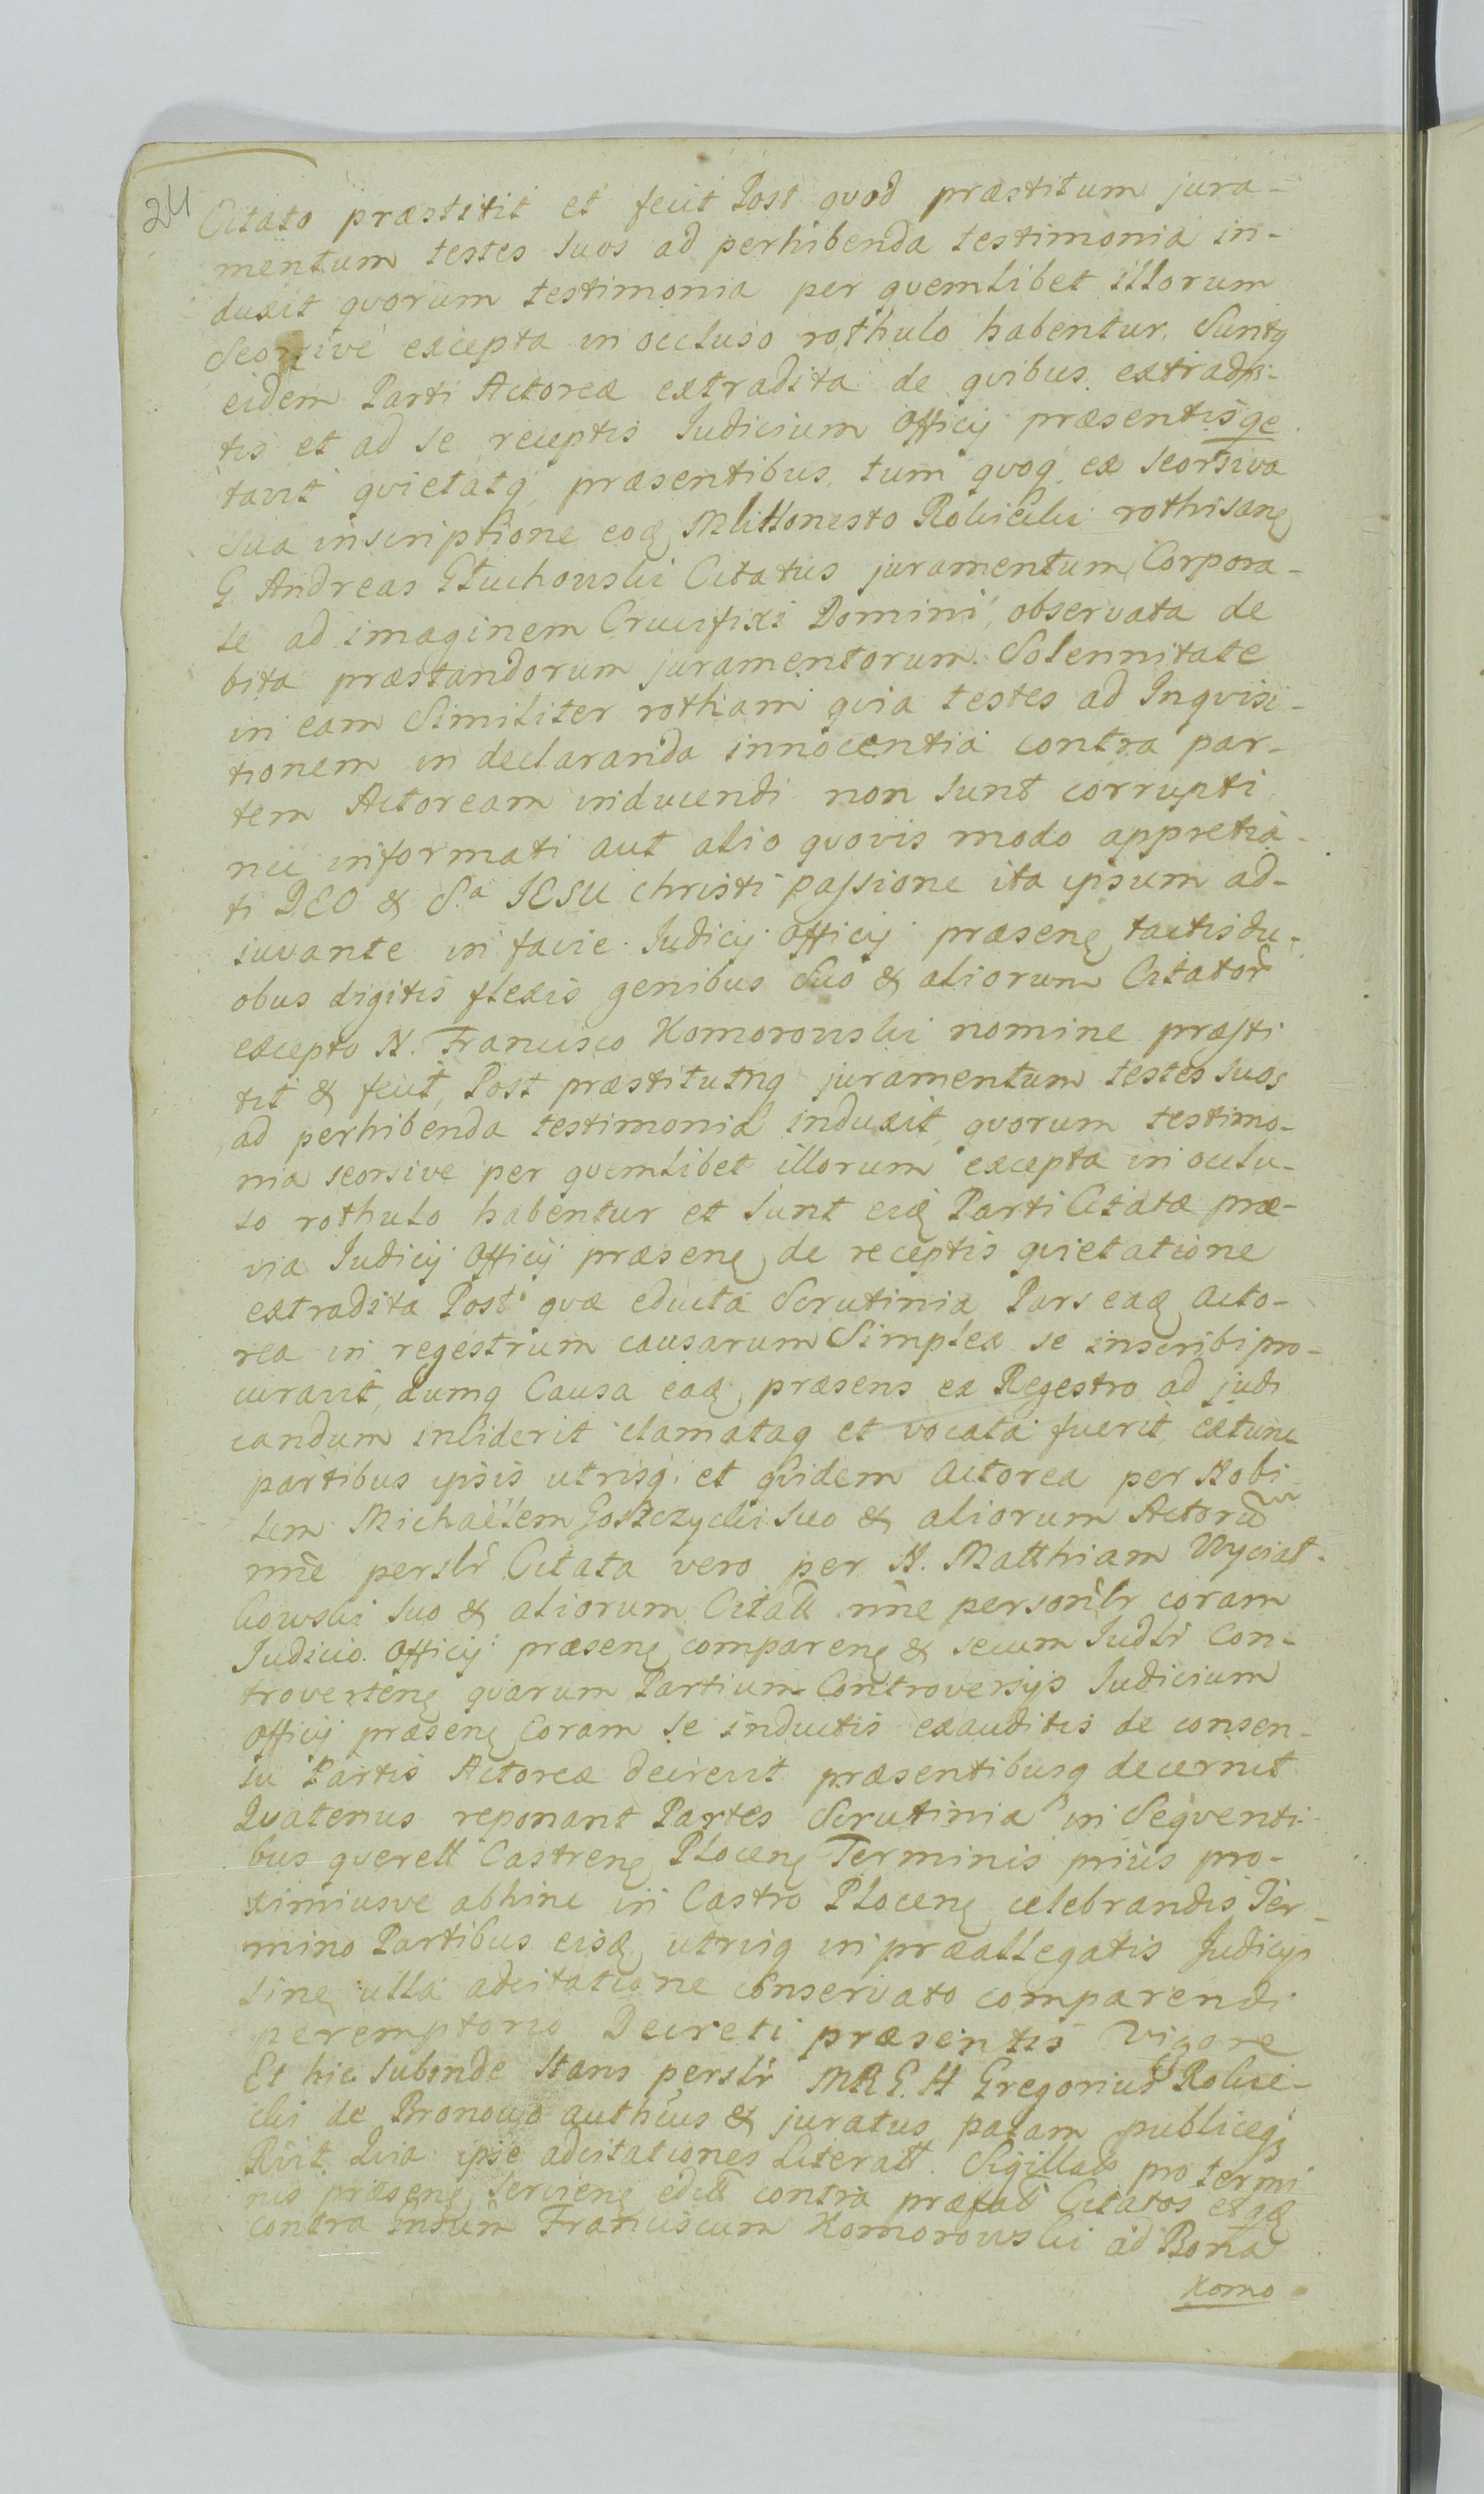 24
Citato præstitit et fecit Post qvod præstitum jura-
mentum testes suos ad perhibenda testimonia in-
duxit qvorum testimonia per qvemlibet illorum
Seorsive excepta in occluso rothulo habentur. Suntq
eidem Parti Actoreæ extradita de qvibus extradi-
tis et ad se receptis Judicium Officij præsentis qe
tavit qvietatq præsentibus, tum qvoq ex seorsiva
sua inscriptione eoq Rokicki rothisanq
G. Andreas Głuchowski Citatus juramentum Corpora-
le ad imaginem Crucifixi Domini observata de
bita præstandorum juramentorum Solennitate
in eam Similiter rotham qvia testes ad Inqvisi-
tionem in declaranda innocentia contra par-
tem Actoream inducendi non sunt corrupti
nec informati aut alio qvovis modo appretia-
ti DEO & S.a JESU Christi passione ita ipsum ad-
iuvante in facie Judicij Officij præsenq tactis du-
obus digitis flexis genibus Suo & aliorum Citator
excepto N. Francisco Komorowski nomine præsti
tit & fecit, Post præstitutnq juramentum testes suos
ad perhibenda testimonia induxit qvorum testimo-
nia seorsive per qvemlibet illorum excepta in occlu-
so rothulo habentur et sunt eiq Parti Citatæ præ-
via Judicij Officij præsenq de receptis qvietatione
extradita Post qvæ educta Scrutinia Pars eaq Acto-
rea in regestrum causarum Simplex se inscribi pro-
curavit, dumq Causa eaq præsens ex Regestro ad judi
candum inciderit clamataq et vocata fuerit extunc
partibus ipsis utrisq et qvidem Actorea per Nobi-
lem Michaëlem Goszczycki suo & aliorum Actorū
nnie perslr Citata vero per N. Matthiam Wyciał-
kowski suo & aliorum Citatt nnie personlr coram
Judicio Officij præsenq comparenq & secum Judlr Con-
trovertenq qvarum Partium Controversijs Judicium
Officij præsenq Coram se inductis exauditis de consen-
su Partis Actoreæ decrevit præsentibusq decernit
Qvatenus reponant Partes Scrutinia in Seqventi-
bus qverell Castrenq Plocenq Terminis prius pro-
ximiusve abhinc in Castro Plocenq celebrandis Ter-
mino Partibus eisq utrisq in præallegatis Judicijs
sine ulla adcitatione conservato comparendi
peremptorio Decreti præsentis Vigore
Et hic subinde Stans perslr MR G. H Gregorius Rokic-
cki de Bronowo authcus & juratus palam publiceq
Rcvit Qvia ipse adcitationes Literatt. Sigillatt pro termi
nis præsenq servienq editt contra præfatt Citatos et qq
contra Franciscum Komorowski ad Bona
Komo